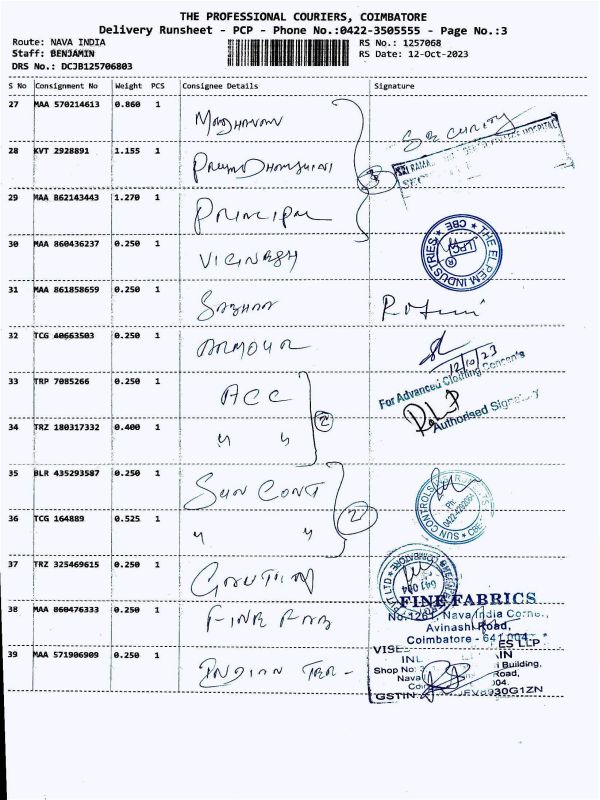 THE PROFESSIONAL COURIERS, COIMBATORE
Delivery Runsheet - PCP - Phone No.:0422-3505555 - Page No.:3
Route: NAVA INDIA
RS No.: 1257068
Staff: BENJAMIN
RS Date: 12-Oct-2023
DRS No.: DCJB125706803
S No Consignment No Weight PCS Consignee Details Signature
27 MAA 570214613 0.860 1
SECURITY
28 KVT 2928891 1.155 1
HOSPITAL
29 MAA 862143443 1.270 1 PRINCIPAL
3
30 MAA 860436237 0.250 1 VIGNESH
THE ELPEM INDUSTRIES ★ CBE ★
31 MAA 861858659 0.250 1
32 TCG 40663503 0.250 1 ARMOUR
12/10/23
33 TRP 7085266 0.250 1 ACC
2
For Advanced Clothing Concepts
34 TRZ 180317332 0.400 1 " "
Authorised Signatory
35 BLR 435293587 0.250 1 SUN CONT
2
SUN CONTROLS
Ph:
CBE
36 TCG 164889 0.525 1 " "
37 TRZ 325469615 0.250 1
641 004
PVT LTD
38 MAA 860476333 0.250 1 FINE FAB
FINE FABRICS
No. 1261, Nava India Corner,
Avinashi Road,
Coimbatore - 641 004.
39 MAA 571906909 0.250 1 INDIAN TER-
ES LLP
Shop No:
Building,
Nava
Road,
GSTIN